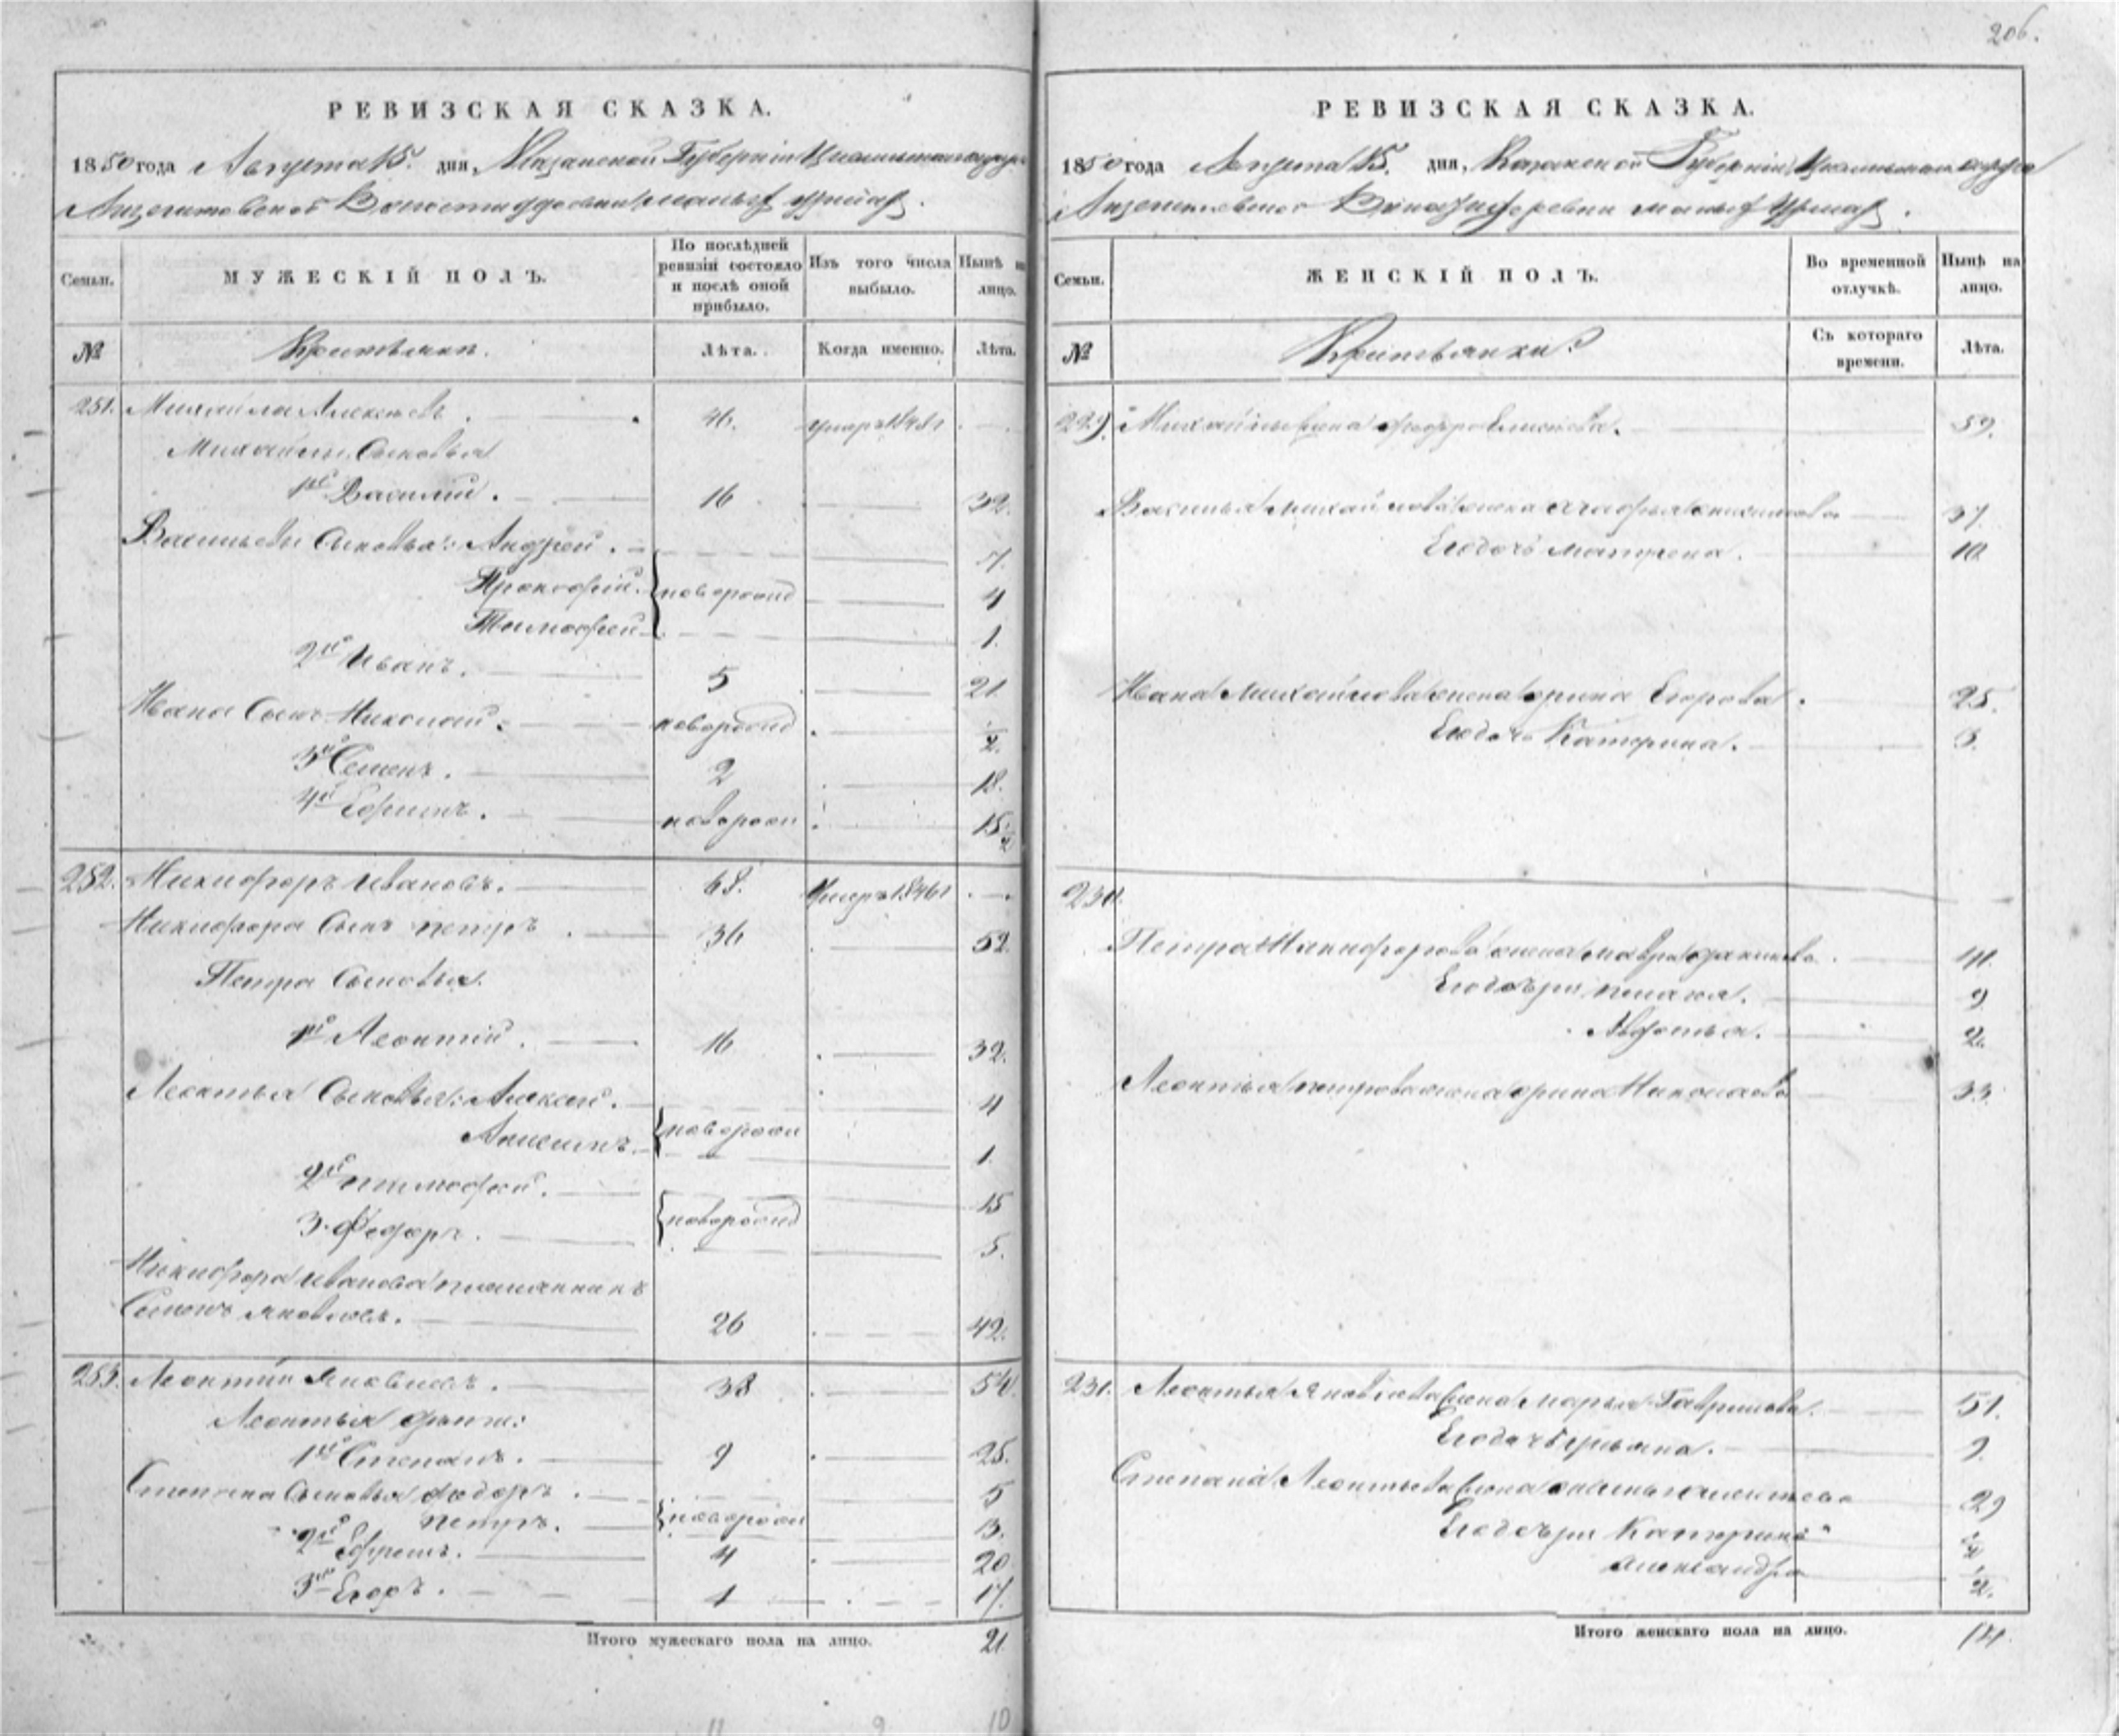 206.
РЕВИЗСКАЯ СКАЗКА.
1850 года Августа 15. дня, Казанской Губернии
Волости деревни малыхъ
Семьи.
МУЖЕСКІЙ ПОЛЪ.
По послѣдней ревизіи состояло и послѣ оной прибыло.
Изъ того числа выбыло.
Нынѣ на лицо.
№
Крестьяне.
Лѣта.
Когда именно.
Лѣта.
251. Михайла Алексѣевъ. 46. умеръ 1848г
Михайлы Сыновья
1й Василій. 16 32.
Васильевы Сыновья: Андрей. 7.
Прокофій. новорожд 4
Тимофей 1.
2й Иванъ. 5 21
Ивана Сынъ Николай. новорожд 1/2.
3й Семенъ. 2 18.
4й Ефимъ. новорож 15 1/2
252. Никифоръ Ивановъ. 68. Умеръ 1846г
Никифора Сынъ петръ 36 52.
Петра Сыновья.
1й Леонтій. 16 32.
Леонтья Сыновья: Алексей. 4
новорож 1.
2й тимофей. 15
3. Федоръ. новорожд 5.
Никифора Иванова племянникъ
Семенъ Яковлевъ. 26 42.
253. Леонтій Яковлевъ. 38 54.
Леонтья дети:
1й Степанъ. 9 25.
Степана Сыновья федоръ. 5
петръ. новорож 3.
2й Ефремъ. 4 20
3й Егоръ. 1 17.
Итого мужескаго пола на лицо. 21.
РЕВИЗСКАЯ СКАЗКА.
1850 года Августа 15. дня, Казанской Губерніи
деревни малыхъ
Семьи.
ЖЕНСКІЙ ПОЛЪ.
Во временной отлучкѣ.
Нынѣ на лицо.
№
Крестьянки.
Съ котораго времени.
Лѣта.
229. Михайлы жена 59.
Василья Михайлова жена 37.
Егодочь матрена. 10.
Ивана Михайлова жена орина Егорова. 25.
Егодочь Катерина. 3.
230.
Петра Никифорова жена мавра 41.
Егодочери 9
Авдотья. 2.
Леонтья петрова жена орина Николаева 33.
231. Леонтья Яковлева жена марья Гаврилова. 51.
Егодочь ульяна. 9.
Степана Леонтьева жена 29
Егодочери Катерина 1/2
Александра 1/2.
Итого женскаго пола на лицо. 14.
11 9 10